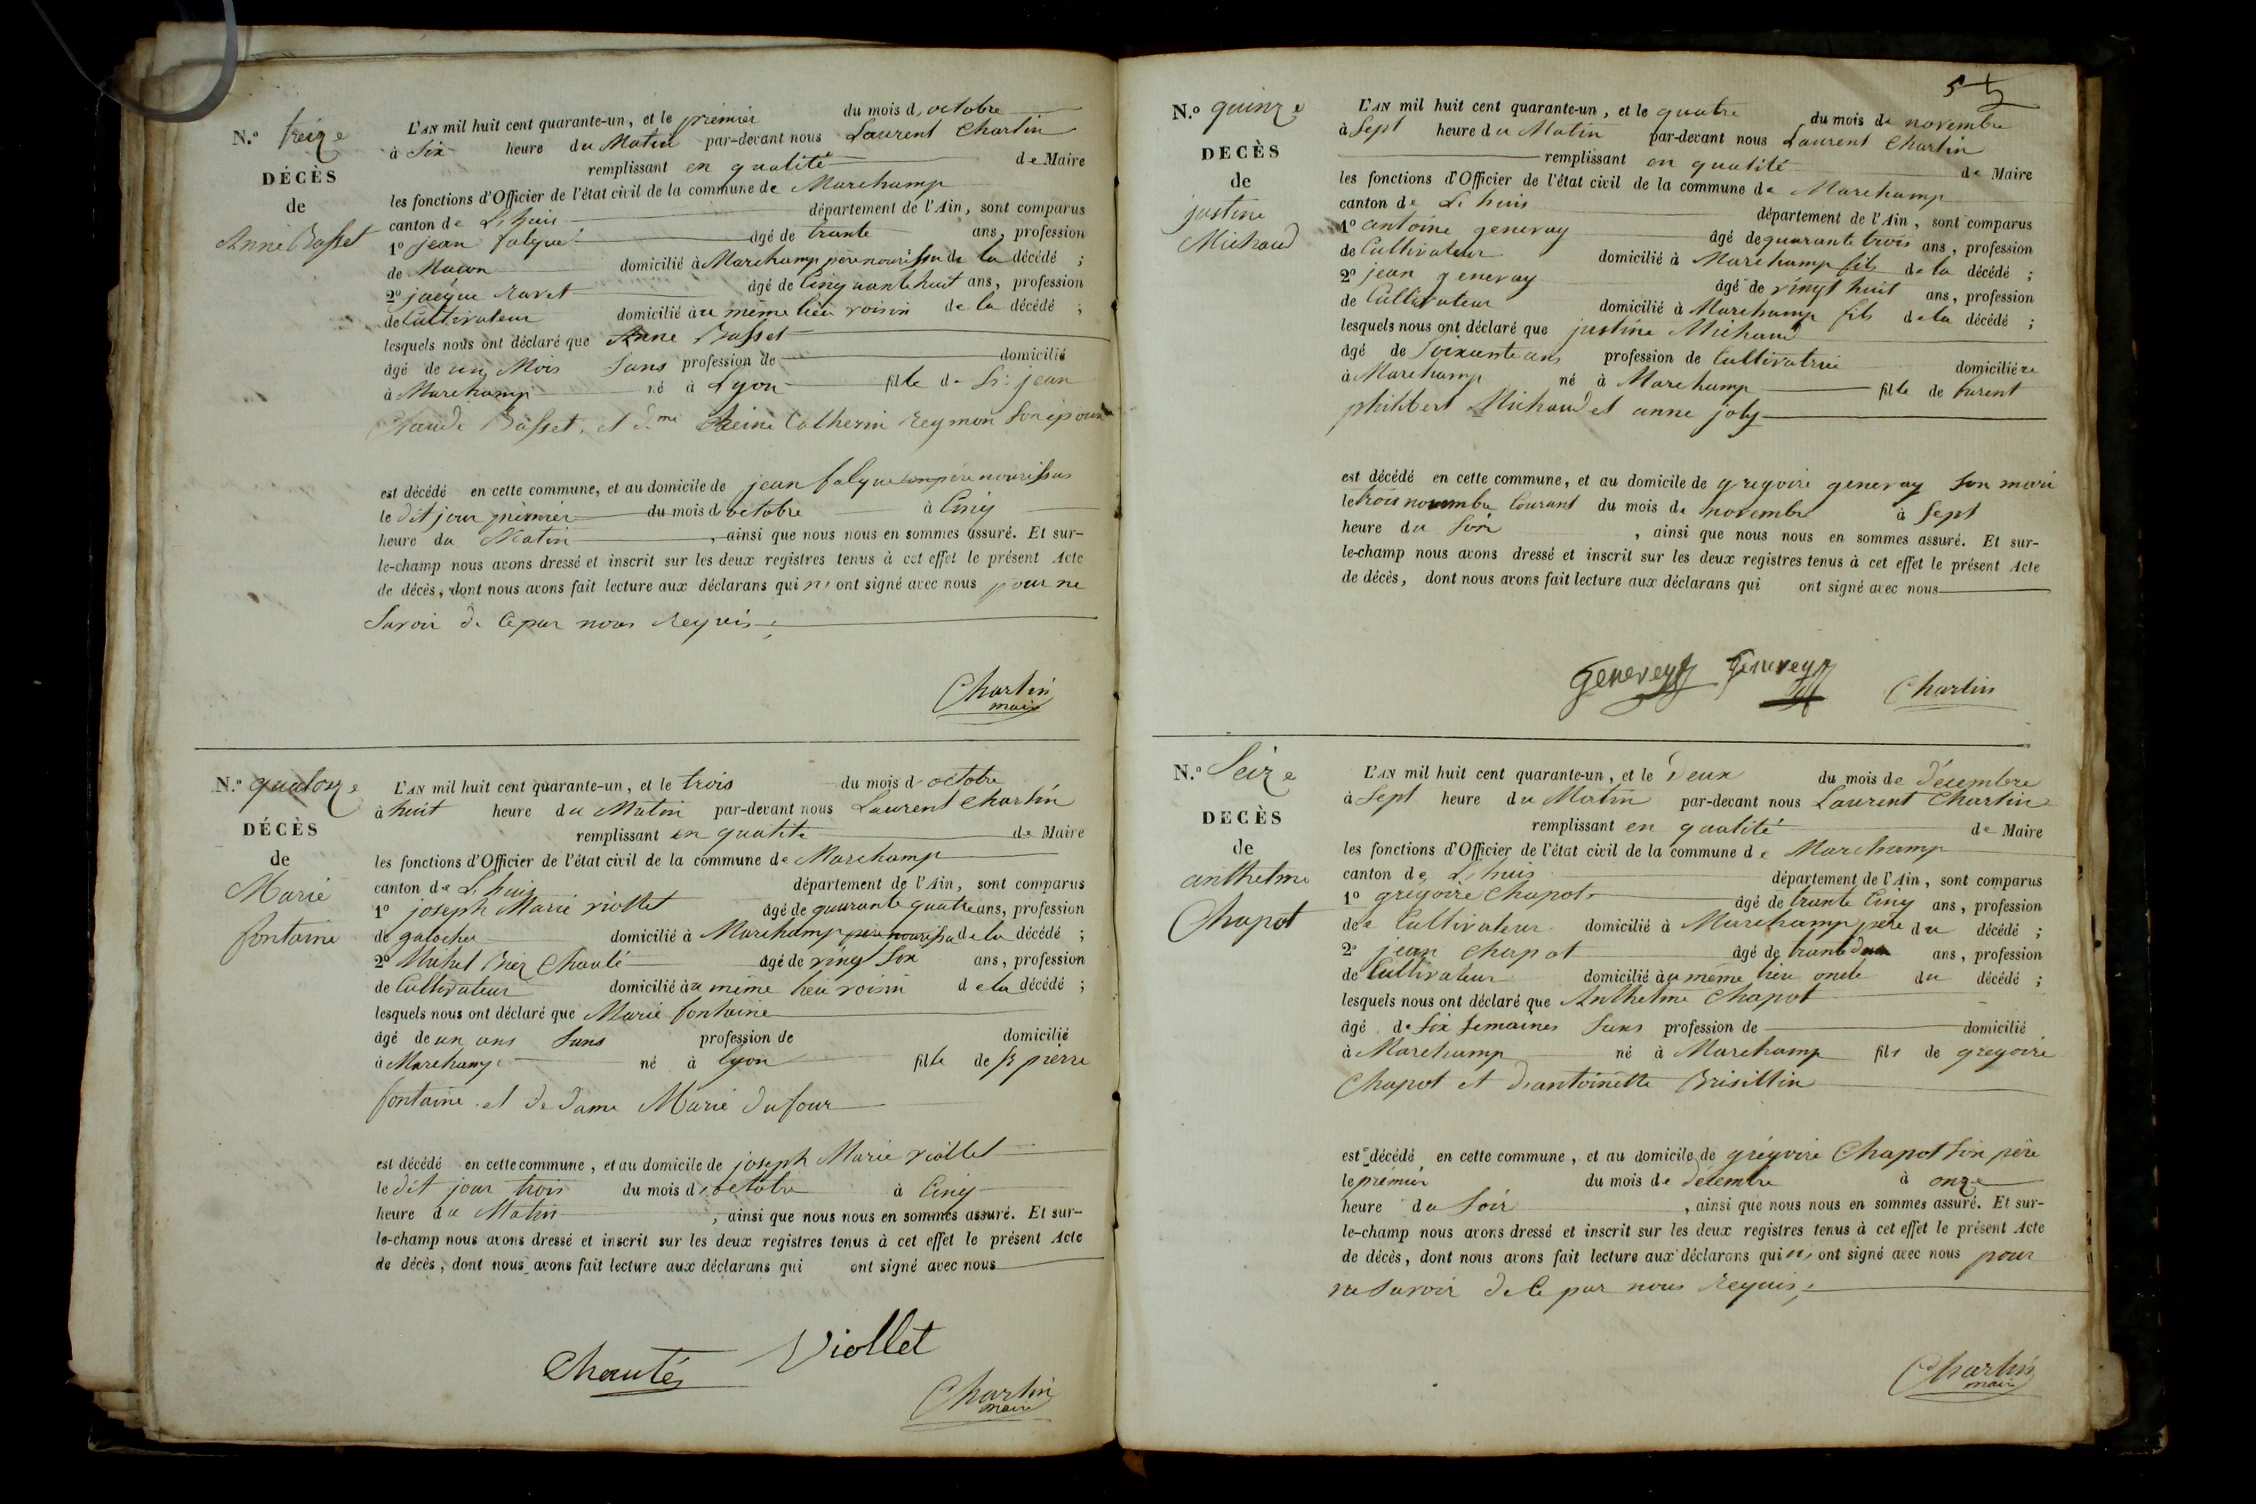 N.º treize
DÉCÈS
de
Anne Basset
L'AN mil huit cent quarante-un, et le premier du mois d octobre
à Six heure du Matin par-devant nous Laurent Charlin
remplissant en qualité de Maire
les fonctions d'Officier de l'état civil de la commune de Marchamp
canton de L'huis département de l'Ain, sont comparus
1º jean falque âgé de trante ans, profession
de Macon domicilié à Marchamp pere nourissu de la décédé ;
2º jacque ravet âgé de Cinquante huit ans, profession
de Cultivateur domicilié à u même lieu voisin de la décédé ;
lesquels nous ont déclaré que Anne Basset
âgé de un Mois Sans profession de domicilié
à Marchamp né à Lyon fille de Sr jean
Claude Basset, et dme Reine Catherin Reymon Son épouse
est décédé en cette commune, et au domicile de jean falque son père nourissus
le dit jour premier du mois d octobre à Cinq
heure du Matin, ainsi que nous nous en sommes assuré. Et sur-
le-champ nous avons dressé et inscrit sur les deux registres tenus à cet effet le présent Acte
de décès, dont nous avons fait lecture aux déclarans qui n'ont signé avec nous pour ne
Savoir de Ce par nous Requis ;
Charlin
maire
N.º quatorze
DÉCÈS
de
Marie
fontaine
L'AN mil huit cent quarante-un, et le trois du mois d octobre
à huit heure du Matin par-devant nous Laurent Charlin
remplissant en qualité de Maire
les fonctions d'Officier de l'état civil de la commune de Marchamp
canton de L'huis département de l'Ain, sont comparus
1º joseph Marie viollet âgé de quarante quatre ans, profession
de galocher domicilié à Marchamp pere nourissu de la décédé ;
2º Michel Chauté âgé de vingt Six ans, profession
de Cultivateur domicilié à u même lieu voisin de la décédé ;
lesquels nous ont déclaré que Marie fontaine
âgé de un ans Sans profession de domicilié
à Marchamp né à lyon fille de Sr pierre
fontaine et de dame Marie dufour
est décédé en cette commune, et au domicile de joseph Marie viollet
le dit jour trois du mois d octobre à Cinq
heure du Matin, ainsi que nous nous en sommes assuré. Et sur-
le-champ nous avons dressé et inscrit sur les deux registres tenus à cet effet le présent Acte
de décès, dont nous avons fait lecture aux déclarans qui ont signé avec nous
Chautés Viollet
Charlin
maire
N.º quinze
DECÈS
de
justine
Michaud
L'AN mil huit cent quarante-un, et le quatre du mois de novembre
à Sept heure du Matin par-devant nous Laurent Charlin
remplissant en qualité de Maire
les fonctions d'Officier de l'état civil de la commune de Marchamp
canton de L'huis département de l'Ain, sont comparus
1º antoine genevay âgé de quarante trois ans, profession
de Cultivateur domicilié à Marchamp fils de la décédé ;
2º jean genevay âgé de vingt huit ans, profession
de Cultivateur domicilié à Marchamp fils de la décédé ;
lesquels nous ont déclaré que justine Michaud
âgé de Soixante ans profession de Cultivatrice domiciliée
à Marchamp né à Marchamp fille de furent
philibert Michaud et anne joly
est décédé en cette commune, et au domicile de gregoire genevay Son mari
le trois novembre Courant du mois de novembre à Sept
heure du Soir, ainsi que nous nous en sommes assuré. Et sur-
le-champ nous avons dressé et inscrit sur les deux registres tenus à cet effet le présent Acte
de décès, dont nous avons fait lecture aux déclarans qui ont signé avec nous
Genevey Genevey Charlin
N.º Seize
DECÈS
de
anthelme
Chapot
L'AN mil huit cent quarante-un, et le deux du mois de décembre
à Sept heure du Matin par-devant nous Laurent Charlin
remplissant en qualité de Maire
les fonctions d'Officier de l'état civil de la commune de Marchamp
canton de L'huis département de l'Ain, sont comparus
1º grégoire Chapot âgé de trante Cinq ans, profession
de Cultivateur domicilié à Marchamp père du décédé ;
2º jean Chapot âgé de trante deux ans, profession
de Cultivateur domicilié à u même lieu oncle du décédé ;
lesquels nous ont déclaré que Anthelme Chapot
âgé de Six Semaines Sans profession de domicilié
à Marchamp né à Marchamp fils de gregoire
Chapot et d'antoinette Brisillin
est décédé en cette commune, et au domicile de grégoire Chapot Son père
le premier du mois de décembre à onze
heure du Soir, ainsi que nous nous en sommes assuré. Et sur-
le-champ nous avons dressé et inscrit sur les deux registres tenus à cet effet le présent Acte
de décès, dont nous avons fait lecture aux déclarans qui n'ont signé avec nous pour
ne Savoir de Ce par nous Requis ;
Charlin
maire